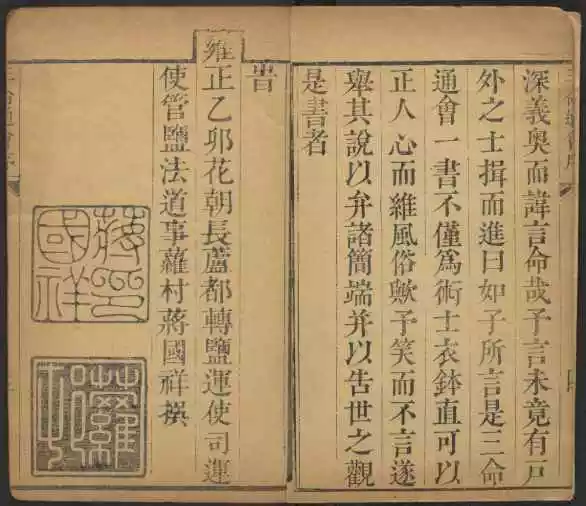 深義奧而諱言命哉予言未竟有戶
外之士揖而進曰如子所言是三命
通會一書不僅爲術士衣鉢直可以
正人心而維風俗歟予笑而不言遂
舉其說以弁諸簡端并以告世之觀
是書者
旹
雍正乙卯花朝長蘆都轉鹽運使司運
使管鹽法道事蘿村蔣國祥撰
蔣國祥印
蘿村